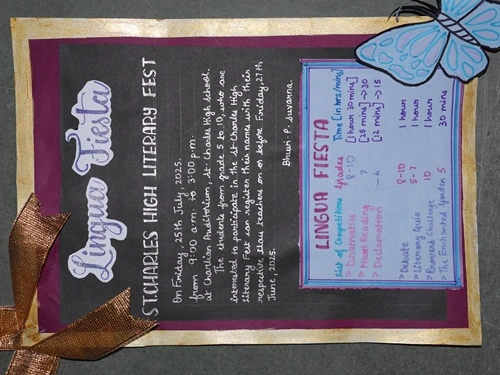 Lingua Fiesta
ST.CHARLES HIGH LITERARY FEST
On Friday, 25th July, 2025.
from 9:00 a.m. to 3:00 p.m.
at Charlian Auditorium, St. Charles High School.
The students from grade 5 to 10, who are
interested to participate in the St Charles High
Literary Fest can register their names with their
respective class teachers on or before Friday, 27th
June, 2025.
Bhuvi. P. Suvarna.
LINGUA FIESTA
List of Competitions Grades Time [in hrs/mins]
> Dramatics 8-10 [1 hour 30 mins]
> News Reading 7 [25 mins] → 30
> Declamation 6 [12 mins] → 15
> Debate 8-10 1 hour
> Literary Quiz 5-7 1 hour
> Challenge 10 1 hour
> The Enchanted Garden 5 30 mins